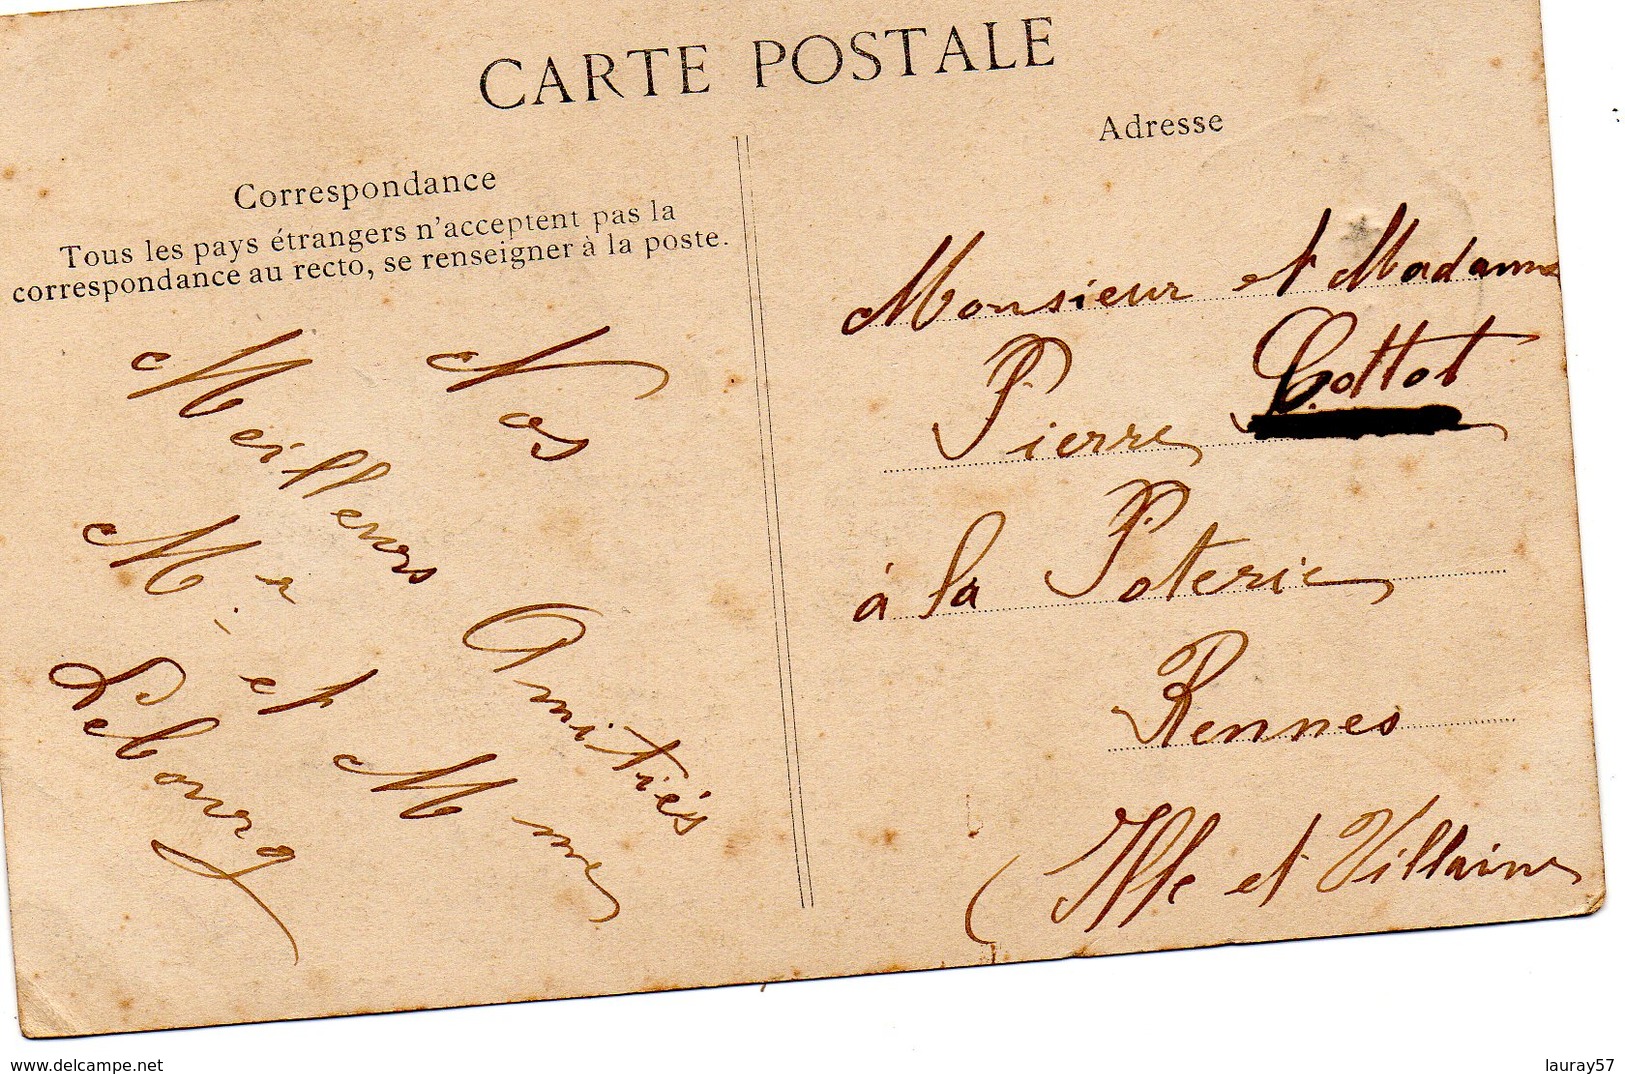 CARTE POSTALE
Correspondance
Tous les pays étrangers n'acceptent pas la
correspondance au recto, se renseigner à la poste.
Nos
Meilleurs Amitiés
Mr et Mme
Lebourg
Adresse
Monsieur et Madame
Pierre Cottot
à la Poterie
Rennes
(Ille et Villaine
delcampe.net
lauray57